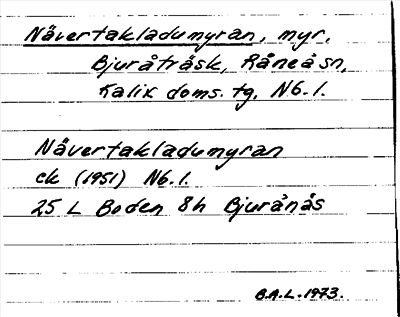 Nävertakladumyran, myr,
Bjuråträsk, Råneå sn,
Kalix doms. tg, Nb. l.
Nävertakladumyran
ek (1951) Nb. l.
25 L Boden 8h Bjurånäs
B.A.L. 1973.